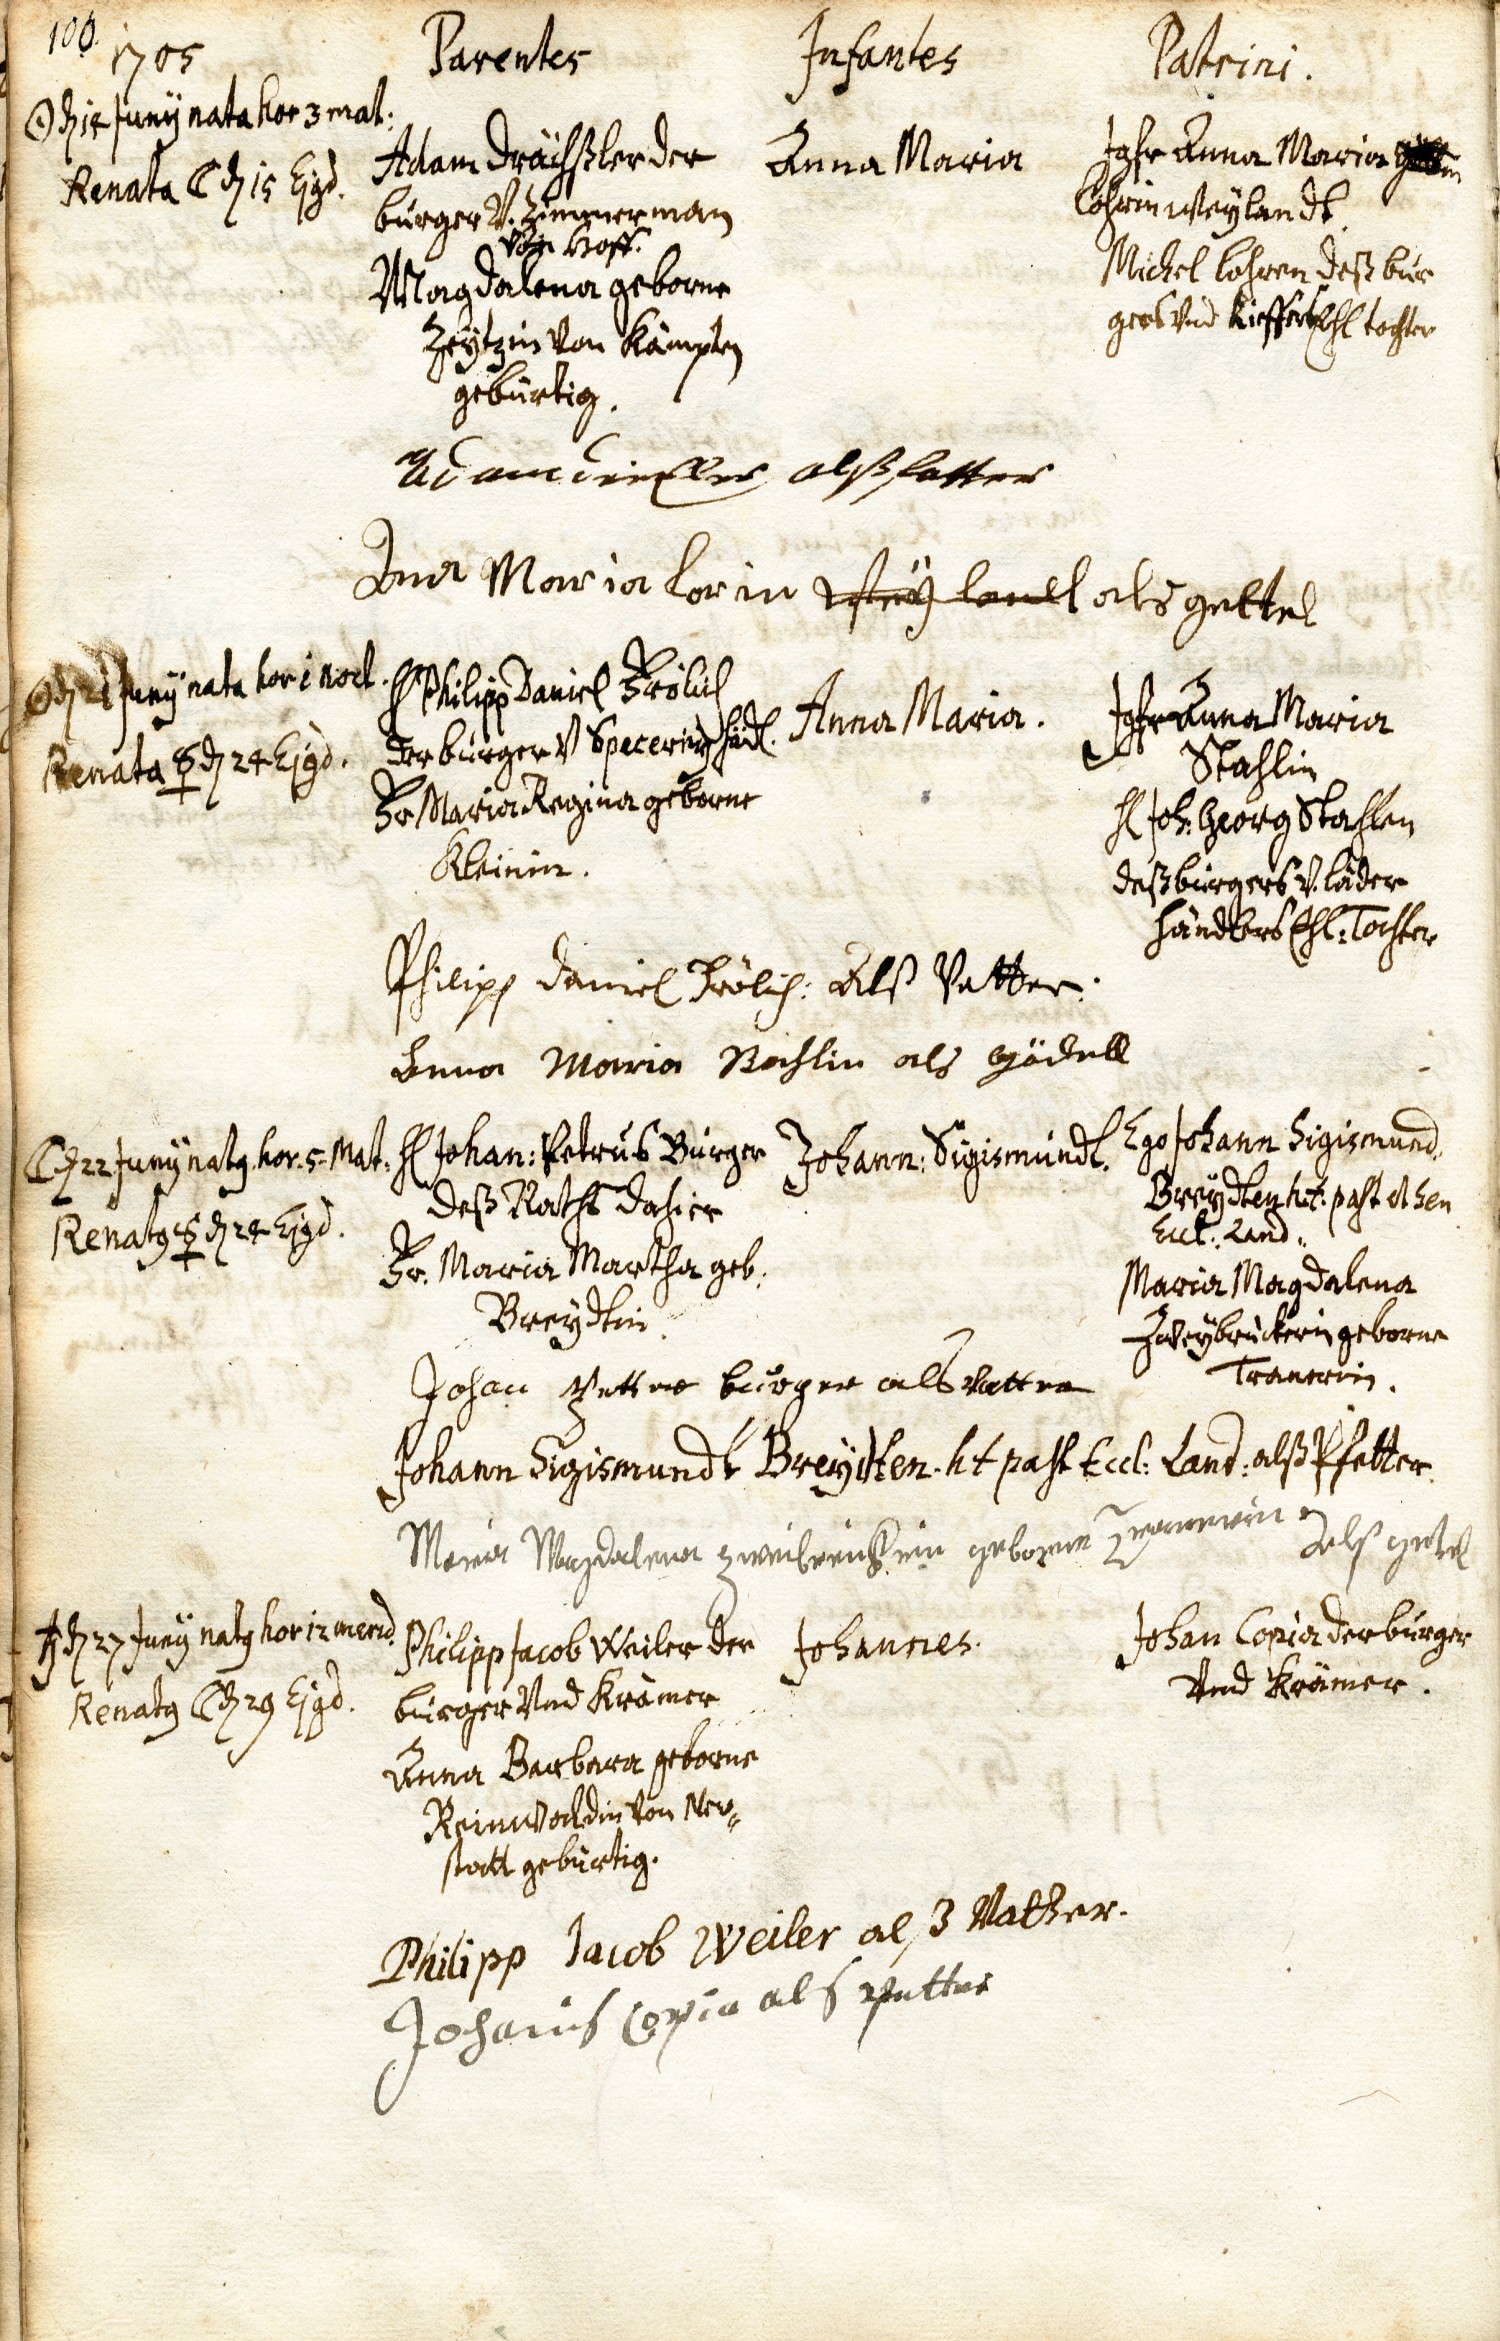 100.
1705
Parentes
Infantes
Patrini.
☉ d 14 Juny nata hor 3 mat:
Renata ☾ d 15 Ejgd.
Adam Drächßler der
burger V. Zimmerman
von Hoff.
Magdalena geborne
Zeytzin Von Kämpten
gebürtig.
Anna Maria
Jgfr Anna Maria
Lohrin Weylandt
Michel Lohren deß bur
gers Vnd Kieffers Ehl tochter
Adam alß fatter
Ana Maria Lorin als gettel
☉ d 21 Juny nata hor 1 noct.
Renata ☿ d 24 Ejgd.
H Philipp Daniel Frölich
der burger V Specereyhändl.
Fr Maria Regina geborne
Kleinin.
Anna Maria.
Jgfr Anna Maria
Stahlin
H Joh: Georg Stahlen
deß burgers V. läder
händlers Ehl: Tochter
Philipp Daniel Frölich: Alß Vatter.
Anna Maria Stahlin als Gödell
☾ d 22 Juny natq. hor. 5. Mat.
Renatq ☿ d 24 Ejgd.
H Johan: Petrus Burger
deß Raths dahier
Fr. Maria Martha geb:
Breydtin.
Johann: Sigismundt.
Ego Johann Sigismund.
Breydten h.t. past
Eccl: Land.
Maria Magdalena
Zweybruckerin geborne
Tranerin.
Johan Petter burger als Vatter
Johann Sigismundt Breydten. h t past Eccl: Land: alß Pfetter.
Maria Magdalena geborne Tranerin Alß getel
♄ d 27 Juny natq hor 12 merid.
Renatq ☾ d 29 Ejgd.
Philipp Jacob Weiler der
burger Vnd Krämer
Anna Barbara geborne
Reinwaldin Von Neu-
statt gebürtig.
Johannes.
Johan Copia der burger
Vnd Krämer.
Philipp Jacob Weiler alß Vatter.
Johanis Copia als Pettter